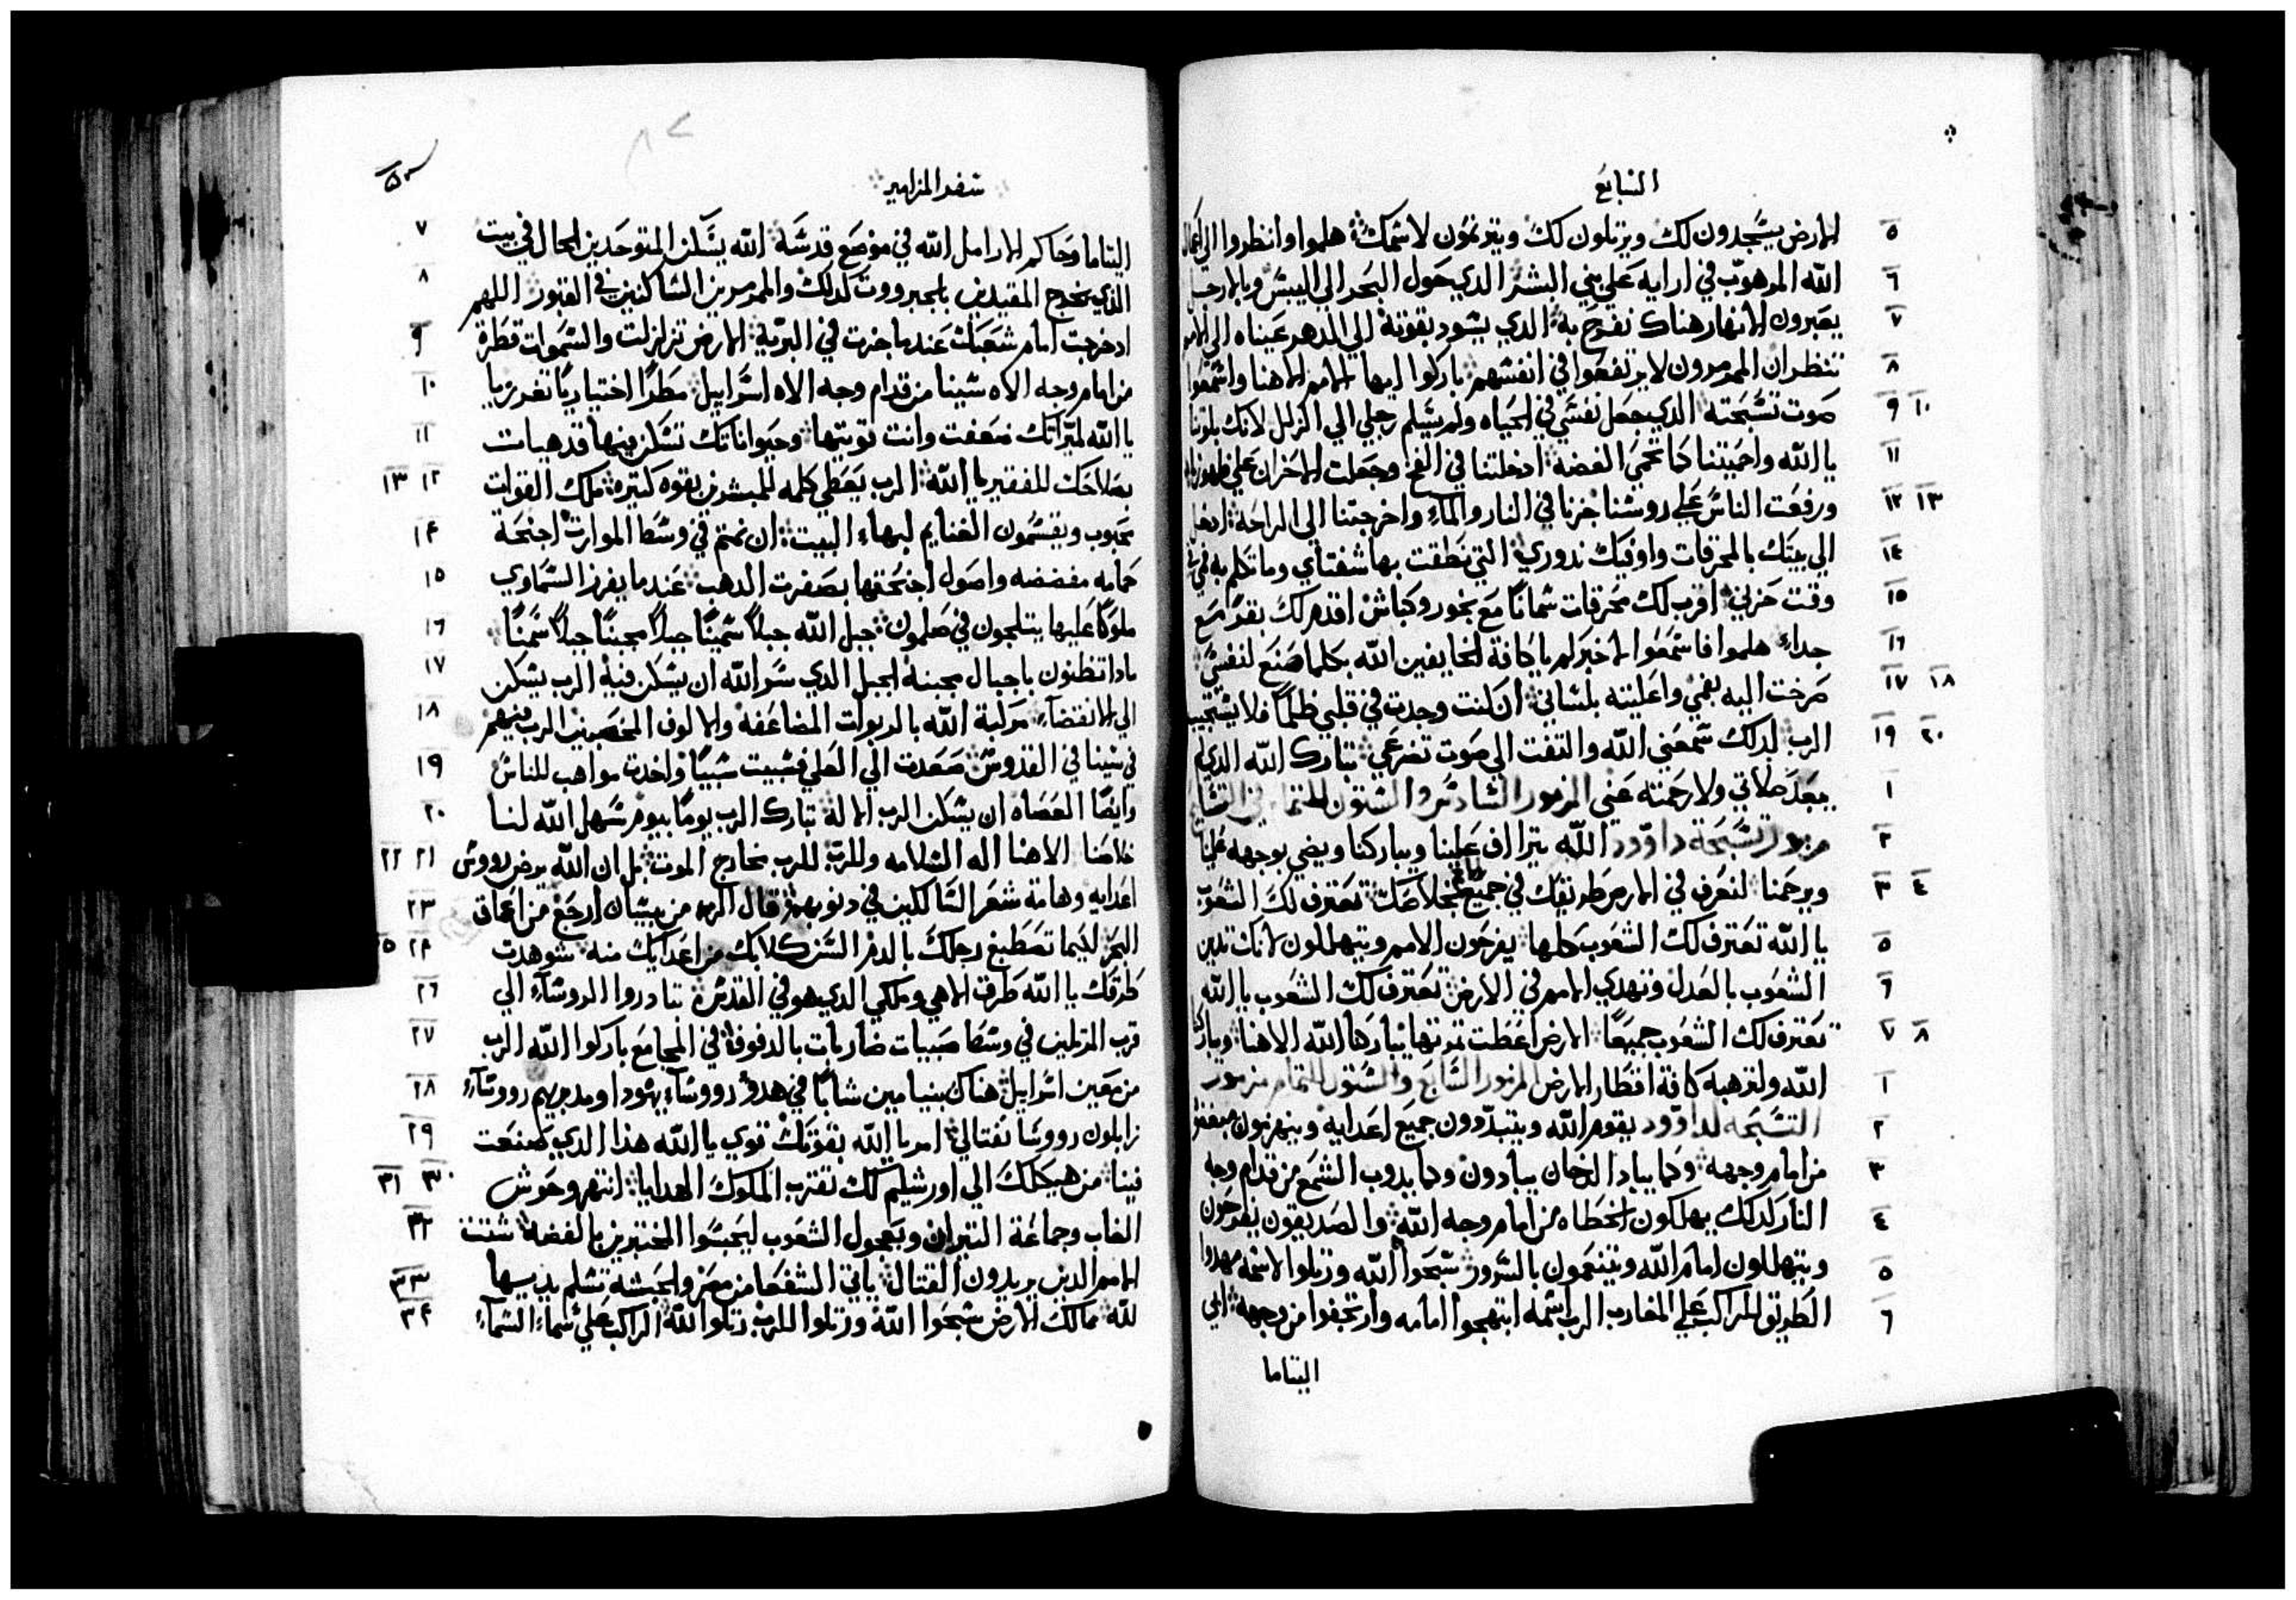 السابع
٥ الارض يسجدون لك ويرتلون لك ويترنمون لاسمك هلموا وانظروا الي اعمال
٦ الله المرهوب في ارايه علي بني البشر الدي حول البحر الي اليبس وبالارجل
٧ يعبرون الانهار هناك نفرح به الدي يسود بقوته الي الدهر عيناه الي الامم
٨ تنظران الممرمرون لا يرتفعوا في انفسهم باركوا ايها الامم الاهنا واسمعوا
٩ ١٠ صوت تسبحته الدي جعل نفسي في الحياه ولم يسلم رجلي الي الزلل لانك بلوتنا
١١ يا الله واحميتنا كما تحمي الفضه ادخلتنا في الفخ وجعلت الاحزان علي ظهورنا
١٢ ١٣ ورفعت الناس علي روسنا جزنا في النار والماء واخرجتنا الي الراحة ادخل
١٤ الي بيتك بالمحرقات واوفيك ندوري التي نطقت بها شفتاي وما تكلم به في
١٥ وقت حزني اقرب لك محرقات سمانا مع بخور وكباش اقدم لك بقر مع
١٦ جداء هلموا فاسمعوا لاخبركم يا كافة الخايفين الله بكلما صنع لنفسي
١٧ ١٨ صرخت اليه بفمي واعليته بلساني ان كنت وجدت في قلبي ظلما فلا يستجيب
١٩ ٢٠ الرب لدلك سمعني الله والتفت الي صوت تضرعي تبارك الله الدي لم
١ يبعد صلاتي ولا رحمته عني المزمور السادس والستون للتمام في التسابيح
٢ مزمور تسبحة داوود الله يتراف علينا ويباركنا ويضي بوجهه علينا
٣ ٤ ويرحمنا لنعرف في الارض طريقك في جميع الامم خلاصك تعترف لك الشعوب
٥ يا الله تعترف لك الشعوب كلها يفرحون الامم ويتهللون لانك تدين
٦ الشعوب بالعدل وتهدي الامم في الارض تعترف لك الشعوب يا الله
٧ ٨ تعترف لك الشعوب جميعا الارض اعطت تمرتها يباركنا الله الاهنا ويباركنا
١ الله ولترهبه كافة اقطار الارض المزمور السابع والستون للتمام مزمور
٢ التسبحه لداوود يقوم الله ويتبددون جميع اعدايه وينهزمون مبغضوه
٣ من امام وجهه وكما يباد الدخان يبادون وكما يدوب الشمع من قدام وجه
٤ النار كدلك يهلكون الخطاه من امام وجه الله والصديقون يفرحون
٥ ويتهللون امام الله ويتنعمون بالسرور سبحوا الله ورتلوا لاسمه مهدوا
٦ الطريق للراكب علي المغارب الرب اسمه ابتهجوا امامه وارتجفوا من وجهه ابي
اليتاما
سفر المزامير
٧ اليتاما وحاكم الارامل الله في موضع قدسه الله يسكن المتوحدين الحال في بيت
٨ الدي يخرج المقيدين بالجبرووت كدلك والممرمرين الساكنين في القبور اللهم
٩ ادخرجت امام شعبك عندما جزت في البرية الارض تزلزلت والسموات قطرة
١٠ من امام وجه الاه سينا من قدام وجه الاه اسراييل مطرا اختياريا تفرز يا
١١ يا الله لميراتك ضعفت وانت قويتها وحيواناتك تسكن فيها قد هيات
١٢ ١٣ بصلاحك للفقير يا الله الرب يعطي كلمه للمبشرين بقوه كتيره ملك القوات
١٤ محبوب ويقسمون الغنايم لبهاء البيت ان نمتم في وسط الموارت اجنحة
١٥ حمامه مفضضه واصول اجنحتها بصفرت الدهب عندما يفرز السماوي
١٦ ملوكا عليها يتلجون في صلمون جبل الله جبلا سمينا جبلا مجبنا جبلا سمينا
١٧ مادا تظنون يا جبال مجبنه الجبل الدي سر الله ان يسكن فيه الرب يسكن
١٨ الي الانقضآء مركبة الله بالربوات المضاعفه والالوف المخصبين الرب فيهم
١٩ في سينا في القدوس صعدت الي العلي فسبيت سبيا واخدت مواهب للناس
٢٠ وايضا العصاه ان يسكن الرب الاله تبارك الرب يوما بيوم سهل الله لنا
٢١ ٢٢ خلاصنا الاهنا اله السلامه وللرب للرب مخارج الموت بل ان الله يرض رووس
٢٣ اعدايه وهامة شعر السالكين في دنوبهم قال الرب من بيسان ارجع من اعماق
٢٤ ٢٥ البحر لكيما تصطبغ رجلك بالدم السن كلابك من اعدايك منه شوهدت
٢٦ طرقك يا الله طرق الاهي وملكي الدي هو في القدس تبادروا الروسآء الي
٢٧ قرب المرتلين في وسط صبيات ضاربات بالدفوف في المجامع باركوا الله الرب
٢٨ من معين اسراييل هناك بنيامين شابا في هدو رووسآء يهودا ومدبريهم رووسآء
٢٩ زابلون رووسا نفتالي امر يا الله بقوتك توي يا الله هذا الدي صنعت
٣٠ ٣١ فينا من هيكلك الي اورشليم لك تقترب الملوك الهدايا انتهر وحوش
٣٢ الغاب وجماعة التيران وبعجول الشعوب ليحبسوا المختبرين بالفضه شتت
٣٣ الامم الدين يريدون القتال ياتي الشفعا من مصر والحبشه تسلم يديها
٣٤ لله ممالك الارض سبحوا الله ورتلوا للرب رتلوا لله الراكب علي سماء السمآء